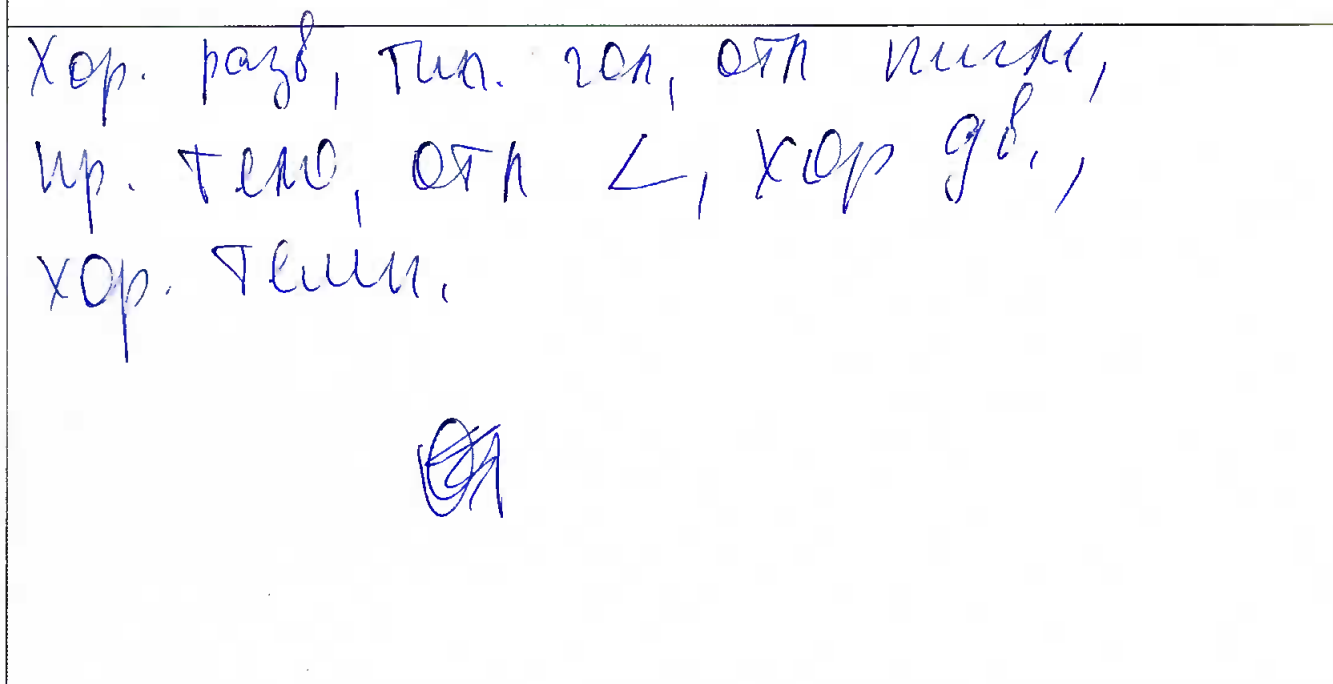 Хор. разв, тип. гол, отл пигм,
кр. тело, отл <, хор дв.,
хор. темп.